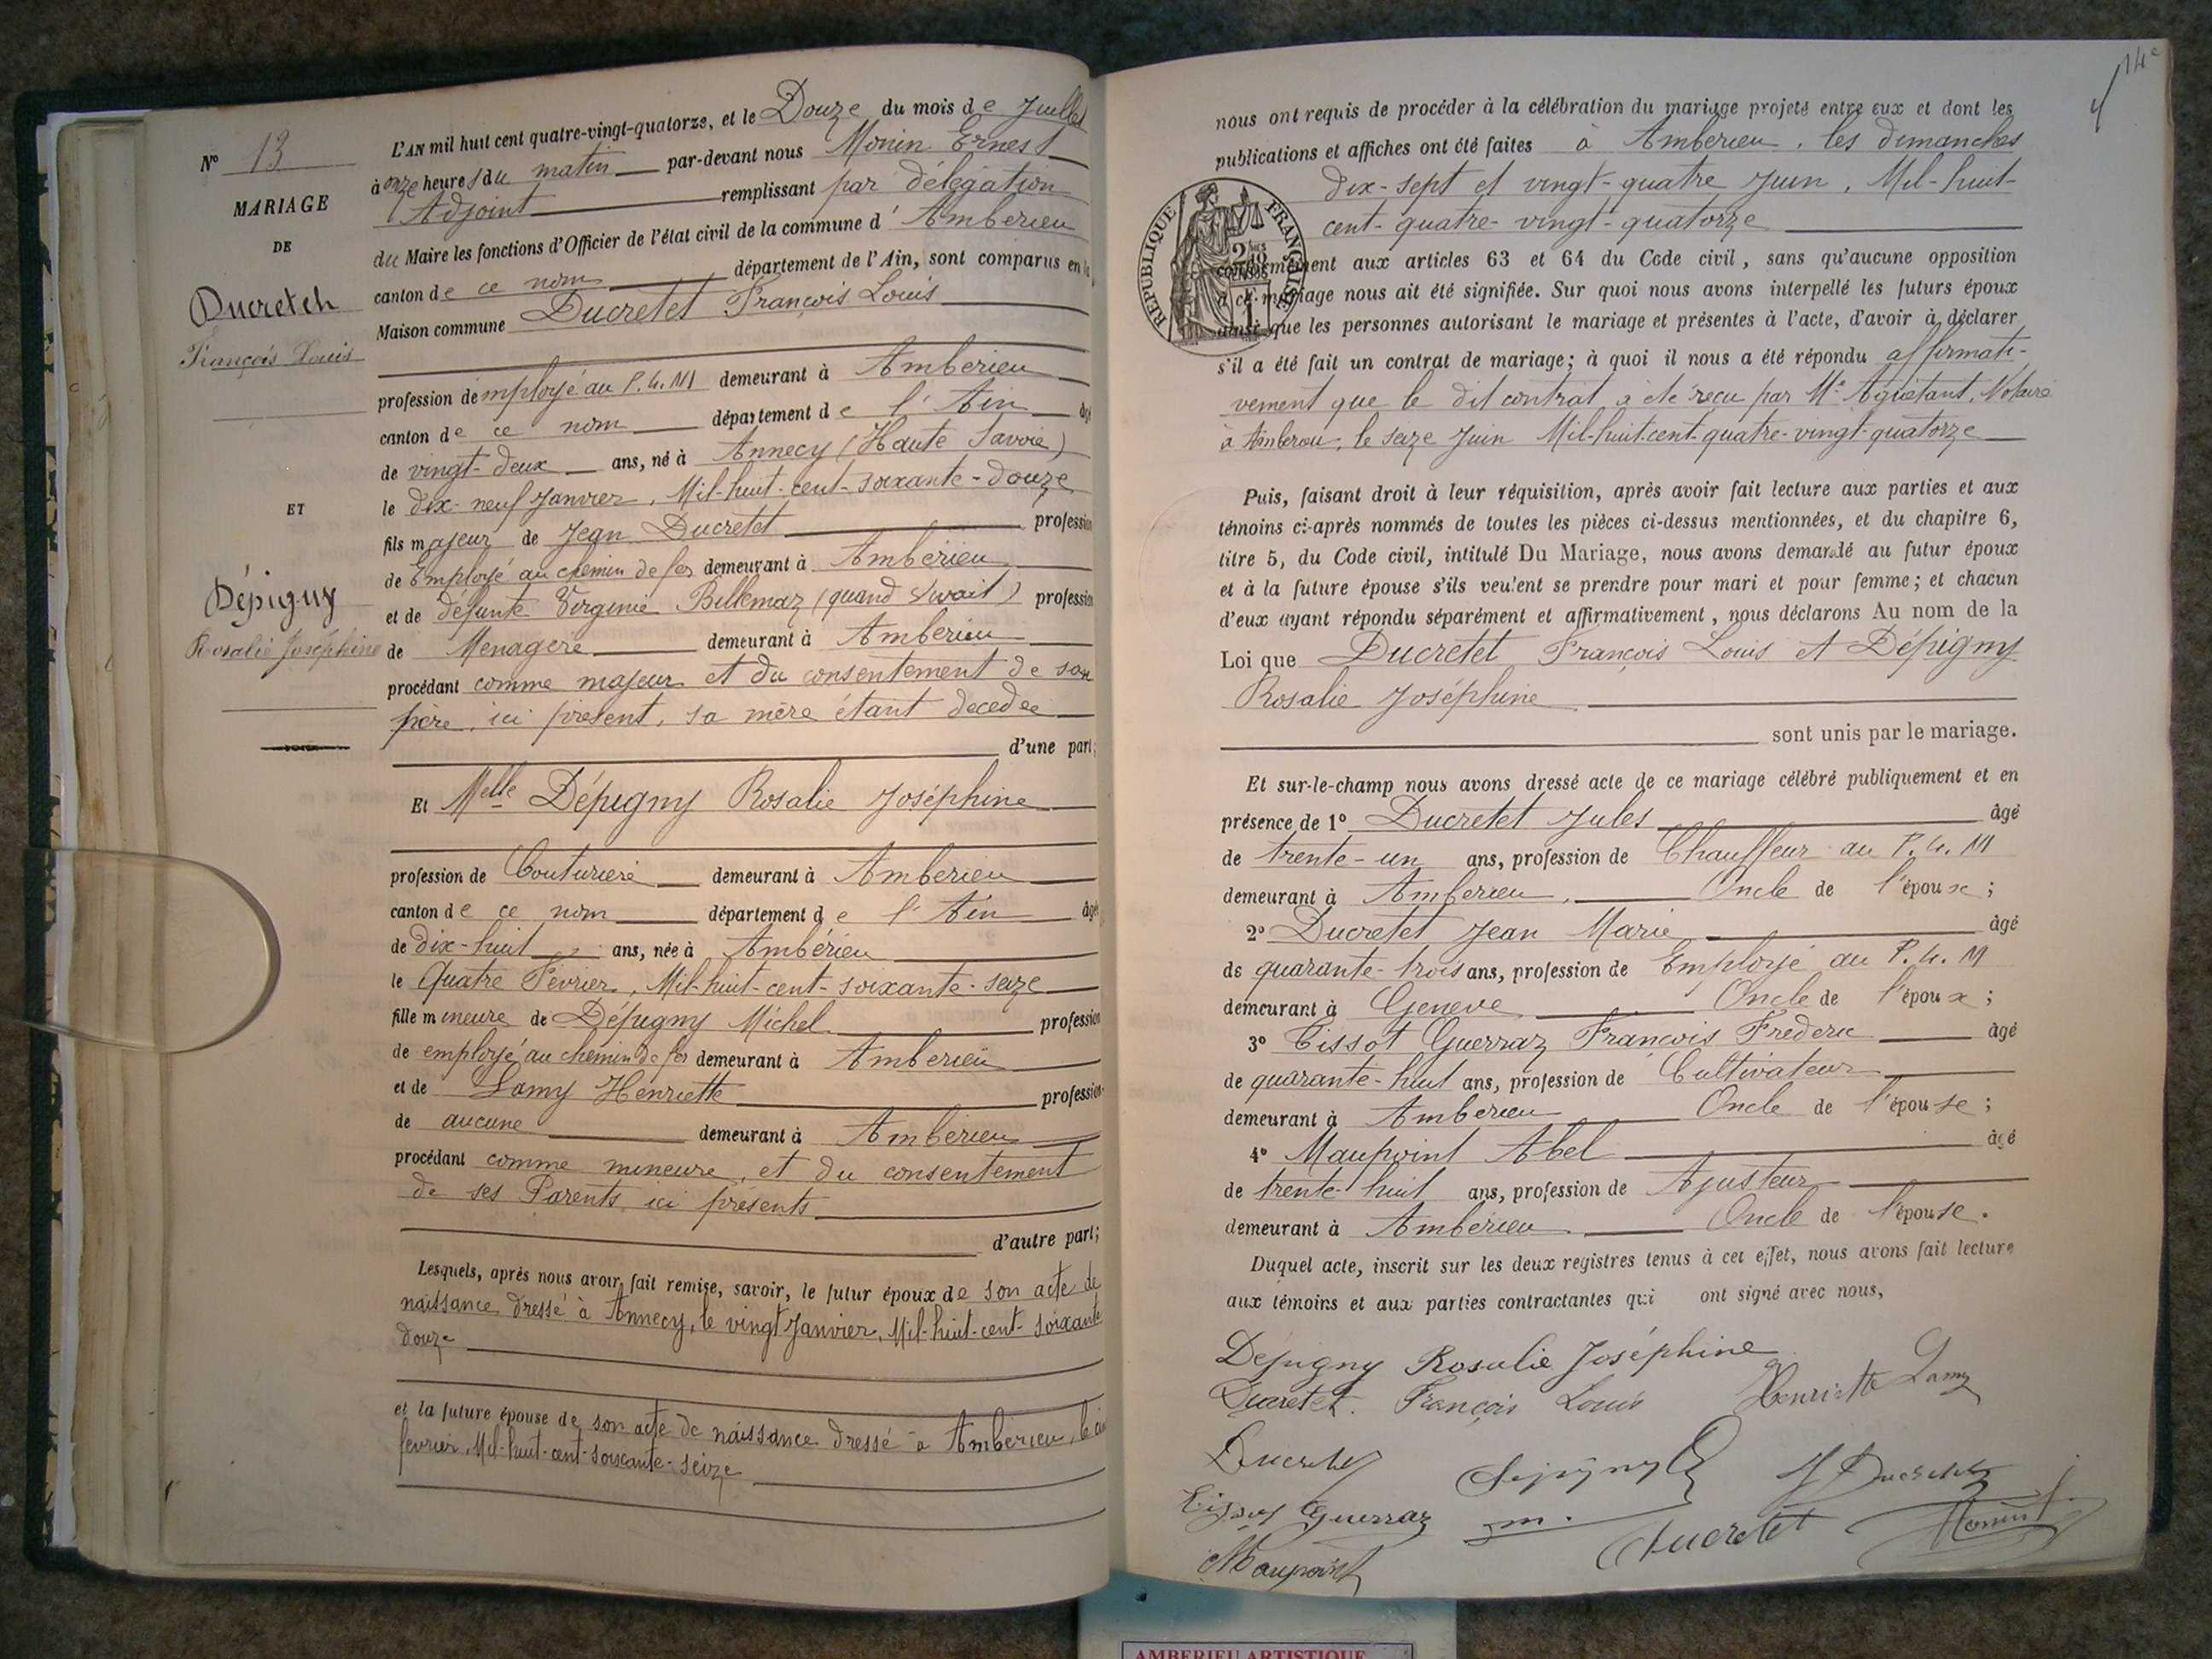 N° 13
MARIAGE
DE
Ducretch
François Louis
ET
Dépigny
Rosalie Joséphine
L'AN mil huit cent quatre-vingt-quatorze, et le Douze du mois de Juillet
à onze heures du matin par-devant nous Monin Ernest
Adjoint remplissant par délégation
du Maire les fonctions d'Officier de l'état civil de la commune d'Amberieu
canton de ce nom département de l'Ain, sont comparus en la
Maison commune Ducretet François Louis
profession d'employé au P.L.M demeurant à Amberieu
canton de ce nom département de l'Ain âgé
de vingt-deux ans, né à Annecy (Haute Savoie)
le dix-neuf Janvier, Mil-huit-cent-soixante-douze
fils majeur de Jean Ducretet profession
de Employé au chemin de fer demeurant à Ambérieu
et de défunte Virginie Billemaz (quand vivait) profession
de Menagère demeurant à Amberieu
procédant comme majeur et du consentement de son
père, ici présent, sa mère étant decedée
d'une part;
Et Melle Dépigny Rosalie Joséphine
profession de Couturière demeurant à Amberieu
canton de ce nom département de l'Ain âgée
de dix-huit ans, née à Ambérieu
le Quatre Février, Mil-huit-cent-soixante-seize
fille mineure de Dépigny Michel profession
de employé au chemin de fer demeurant à Amberieu
et de Lamy Henriette profession
de aucune demeurant à Amberieu
procédant comme mineure, et du consentement
de ses Parents, ici présents
d'autre part;
Lesquels, après nous avoir fait remise, savoir, le futur époux de son acte de
naissance dressé à Annecy, le vingt Janvier, Mil-huit-cent-soixante
douze
et la future épouse de son acte de naissance dressé à Amberieu, le
février, Mil-huit-cent-soixante-seize
14e
nous ont requis de procéder à la célébration du mariage projeté entre eux et dont les
publications et affiches ont été faites à Amberieu, les dimanches
dix-sept et vingt-quatre Juin, Mil-huit-
cent-quatre-vingt-quatorze
RÉPUBLIQUE FRANÇAISE
conformément aux articles 63 et 64 du Code civil, sans qu'aucune opposition
à ce mariage nous ait été signifiée. Sur quoi nous avons interpellé les futurs époux
ainsi que les personnes autorisant le mariage et présentes à l'acte, d'avoir à déclarer
s'il a été fait un contrat de mariage; à quoi il nous a été répondu affirmati-
vement que le dit contrat à été reçu par Me Aguétant, Notaire
à Amberieu, le seize Juin Mil-huit-cent-quatre-vingt-quatorze
Puis, faisant droit à leur réquisition, après avoir fait lecture aux parties et aux
témoins ci-après nommés de toutes les pièces ci-dessus mentionnées, et du chapitre 6,
titre 5, du Code civil, intitulé Du Mariage, nous avons demandé au futur époux
et à la future épouse s'ils veulent se prendre pour mari et pour femme; et chacun
d'eux ayant répondu séparément et affirmativement, nous déclarons Au nom de la
Loi que Ducretet François Louis et Dépigny
Rosalie Joséphine
sont unis par le mariage.
Et sur-le-champ nous avons dressé acte de ce mariage célébré publiquement et en
présence de 1° Ducretet Jules âgé
de trente-un ans, profession de Chauffeur au P.L.M
demeurant à Amberieu, Oncle de l'épouse;
2° Ducretet Jean Marie âgé
de quarante-trois ans, profession de Employé au P.L.M
demeurant à Geneve Oncle de l'époux;
3° Tissot Guerraz François Frederic âgé
de quarante-huit ans, profession de Cultivateur
demeurant à Amberieu Oncle de l'épouse;
4° Maupoint Abel âgé
de trente-huit ans, profession de Ajusteur
demeurant à Ambérieu Oncle de l'épouse.
Duquel acte, inscrit sur les deux registres tenus à cet effet, nous avons fait lecture
aux témoins et aux parties contractantes qui ont signé avec nous,
Dépigny Rosalie Joséphine
Ducretet François Louis Henriette Lamy
Ducretet Depigny J Ducretet
Tissot Guerraz m. Ducretet Monin
Maupoint
AMBERIEU ARTISTIQUE